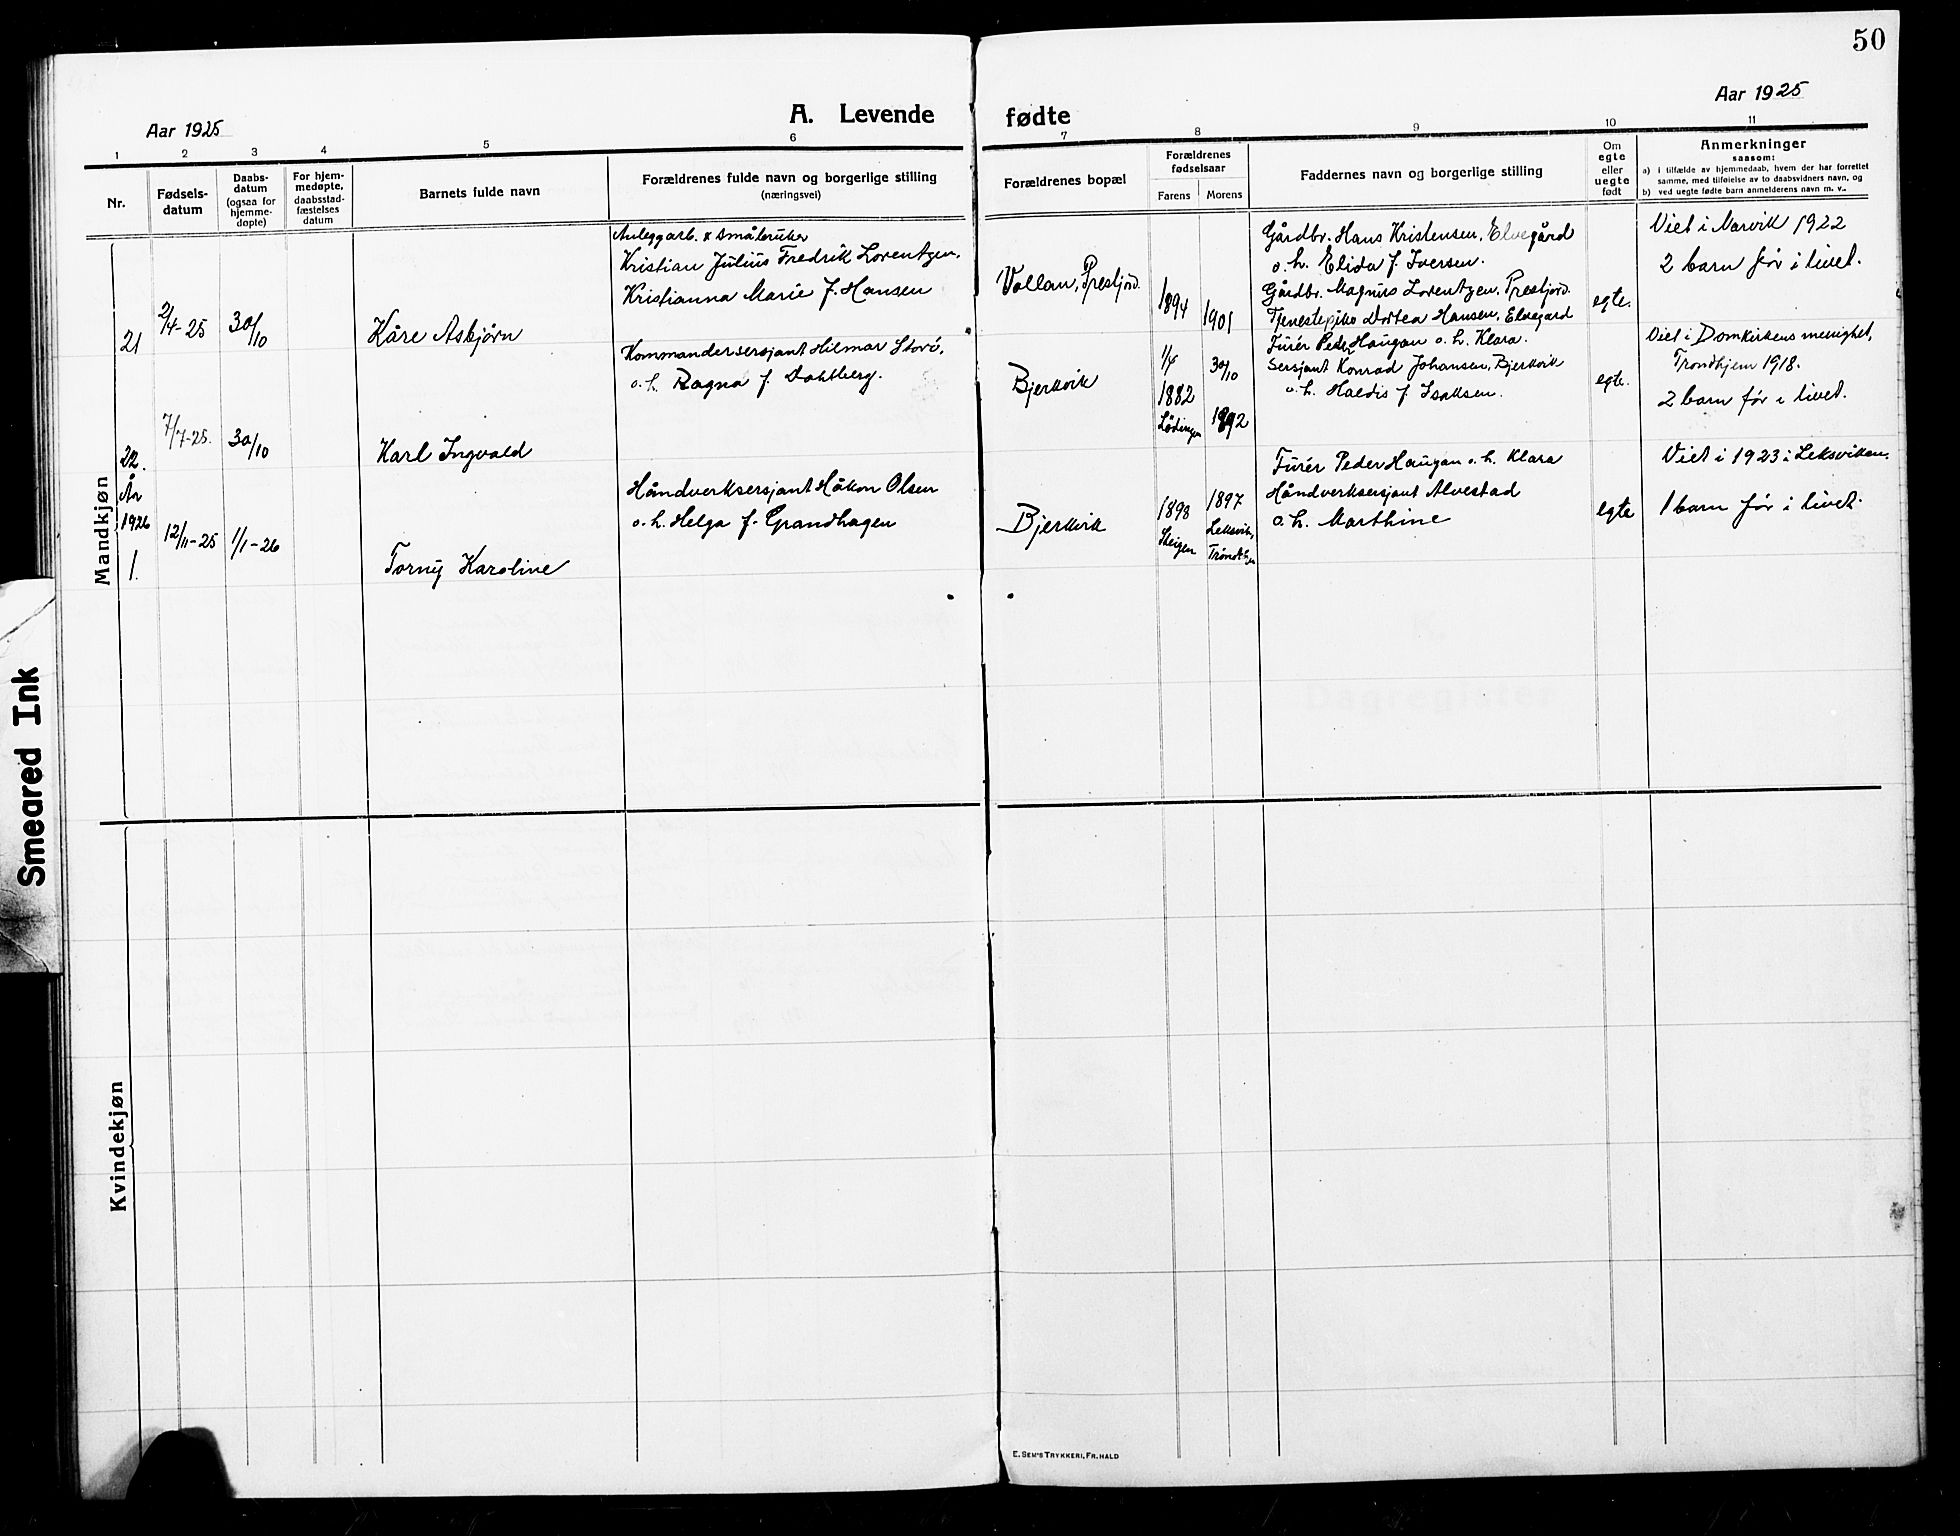 50
Aar 1925
A. Levende
fødte
Aar 1925
1 2 3 4 5 6 7 8 9 10 11
Nr.
Fødsels-
datum
Daabs-
datum
(ogsaa for
hjemme-
døpte)
For hjem-
medøpte,
daabsstad-
fæstelses
datum
Barnets fulde navn
Forældrenes fulde navn og borgerlige stilling
(næringsvei)
Forældrenes bopæl
Forældrenes
fødselsaar
Farens Morens
Faddernes navn og borgerlige stilling
Om
egte
eller
uegte
født
Anmerkninger
saasom:
a) i tilfælde av hjemmedaab, hvem der har forrettet
samme, med tilføielse av to daabsvidners navn, og
b) ved uegte fødte barn anmelderens navn m. v..
Mandkjøn
21
2/4-25
30/10
Kåre Asbjørn
Anleggarb. & småbruker
Kristian Julius Fredrik Lorentzen.
Kristianna Marie f. Hansen
Vollan, Prestjord.
1894
1901
Gårdbr. Hans Kristensen, Elvegård
o. h. Elida f. Iversen.
Gårdbr. Magnus Lorentzen, Prestjord.
Tjenestepike Dortea Hansen, Elvegard
egte.
Viet i Narvik 1922
2 barn før i livet.
22.
7/7-25.
30/10
Karl Ingvald
Kommandersersjant Hilmar Storø,
o. h. Ragna f. Dahlberg.
Bjerkvik
1/4
1882
Lødingen
30/10
1892
Furér Peder Haugan o. h. Klara.
Sersjant Konrad Johansen, Bjerkvik
o. h. Haldis f. Isaksen.
egte.
Viet i Domkirkens menighet,
Trondhjem 1918.
2 barn før i livet.
År
1926
1.
12/11-25
1/1-26
Torny Karoline
Håndverksersjant Håkon Olsen
o. h. Helga f. Grandhagen
Bjerkvik
1898
Steigen
1897
Leksvik,
Furér Peder Haugan o. h. Klara
Håndverksersjant Alvestad
o. h. Marthine
egte
Viet i 1923 i Leksviken.
1 barn før i livet.
Kvindekjøn
Smeared Ink
E. SEM'S TRYKKERI, FR. HALD